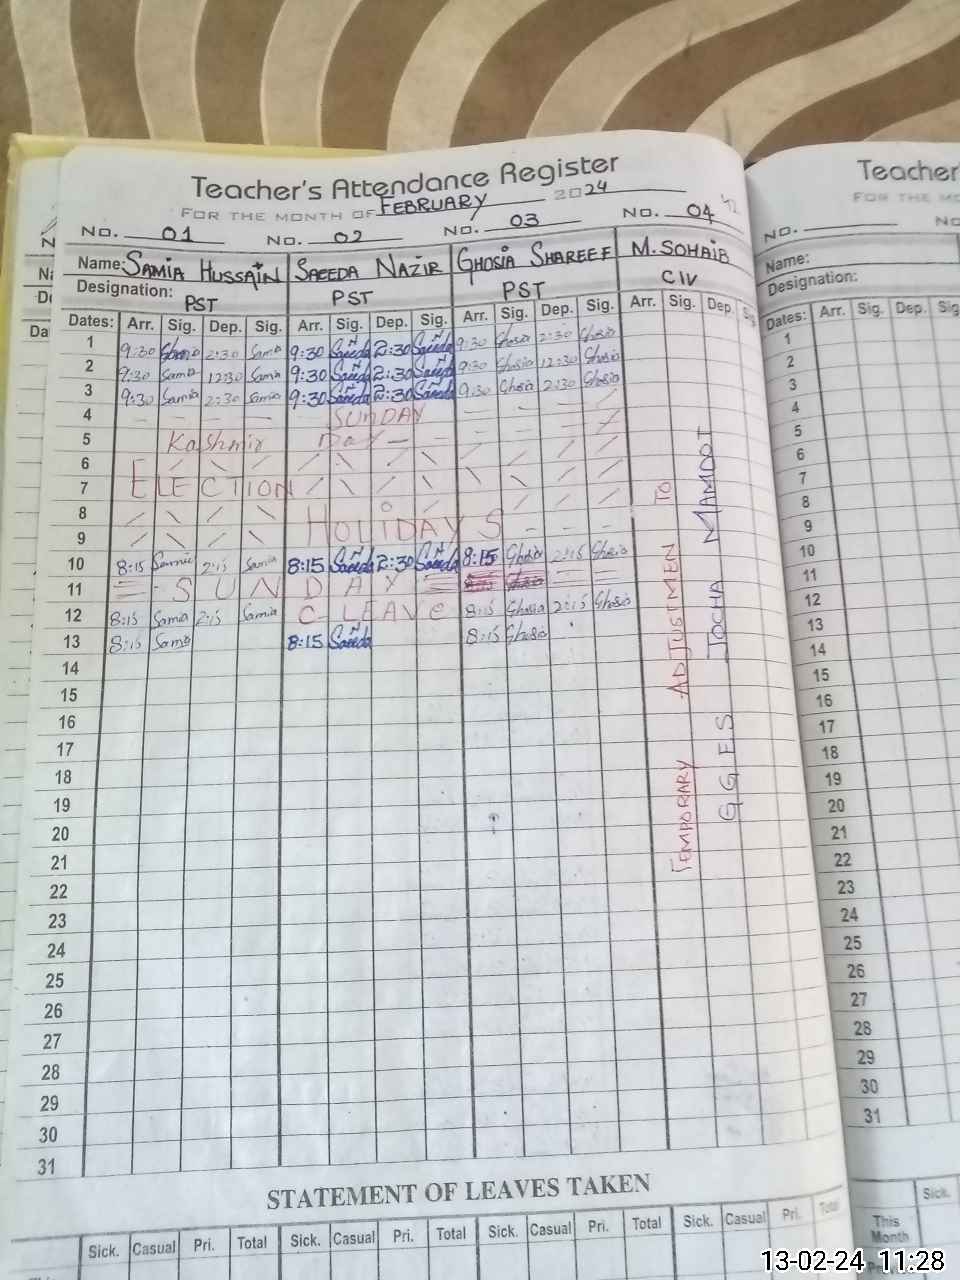 Teacher's Attendance Register
FOR THE MONTH OF FEBRUARY 2024
No. 01 No. 02 No. 03 No. 04
Name: SAMIA HUSSAIN SAEEDA NAZIR GHOSIA SHAREEF M. SOHAIB
Designation: PST PST PST CIV
Dates: Arr. Sig. Dep. Sig. Arr. Sig. Dep. Sig. Arr. Sig. Dep. Sig. Arr. Sig. Dep. Sig.
1 9:30 2:30 Samia 9:30 Saeeda 2:30 Saeeda 9:30 Ghosia 2:30 Ghosia
2 9:30 Samia 12:30 Samia 9:30 Saeeda 2:30 Saeeda 9:30 Ghosia 12:30 Ghosia
3 9:30 Samia 2:30 Samia 9:30 Saeeda 2:30 Saeeda 9:30 Ghosia 2:30 Ghosia
4 SUNDAY
5 Kashmir Day
6
7 ELECTION
8 HOLIDAYS
9
10 8:15 Samia 2:15 Samia 8:15 Saeeda 2:30 Saeeda 8:15 Ghosia 2:15 Ghosia
11 SUNDAY
12 8:15 Samia 2:15 Samia C-LEAVE 8:15 Ghosia 2:15 Ghosia
13 8:15 Samia 8:15 Saeeda 8:15 Ghosia
14
15
16
17
18
19
20
21
22
23
24
25
26
27
28
29
30
31
TEMPORARY ADJUSTMEN TO
GGES JOCHA MAMDOT
STATEMENT OF LEAVES TAKEN
Sick. Casual Pri. Total Sick. Casual Pri. Total Sick. Casual Pri. Total Sick. Casual Pri. Total
Teacher
FOR THE MO
No.
Name:
Designation:
Dates: Arr. Sig. Dep. Sig.
1
2
3
4
5
6
7
8
9
10
11
12
13
14
15
16
17
18
19
20
21
22
23
24
25
26
27
28
29
30
31
Sick.
This Month
13-02-24 11:28